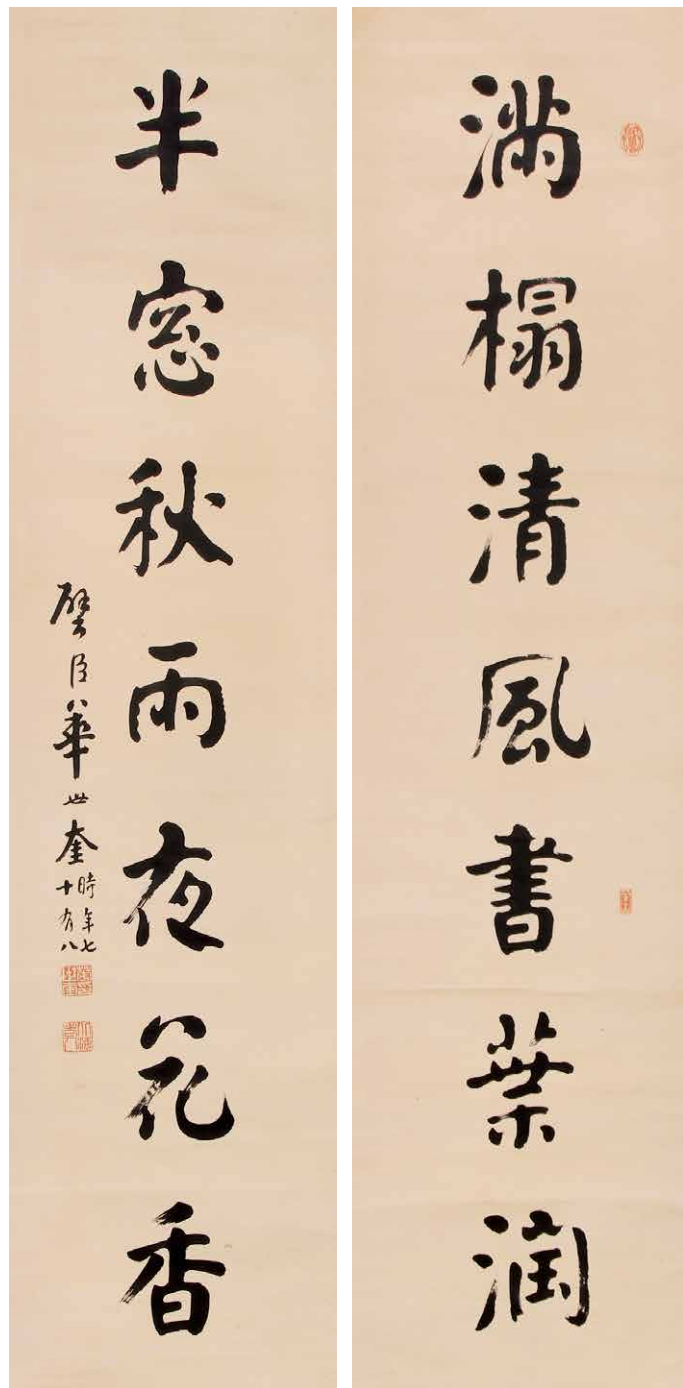 滿榻清風書葉潤
半窓秋雨夜花香
璧臣華世奎
時年七
十有八